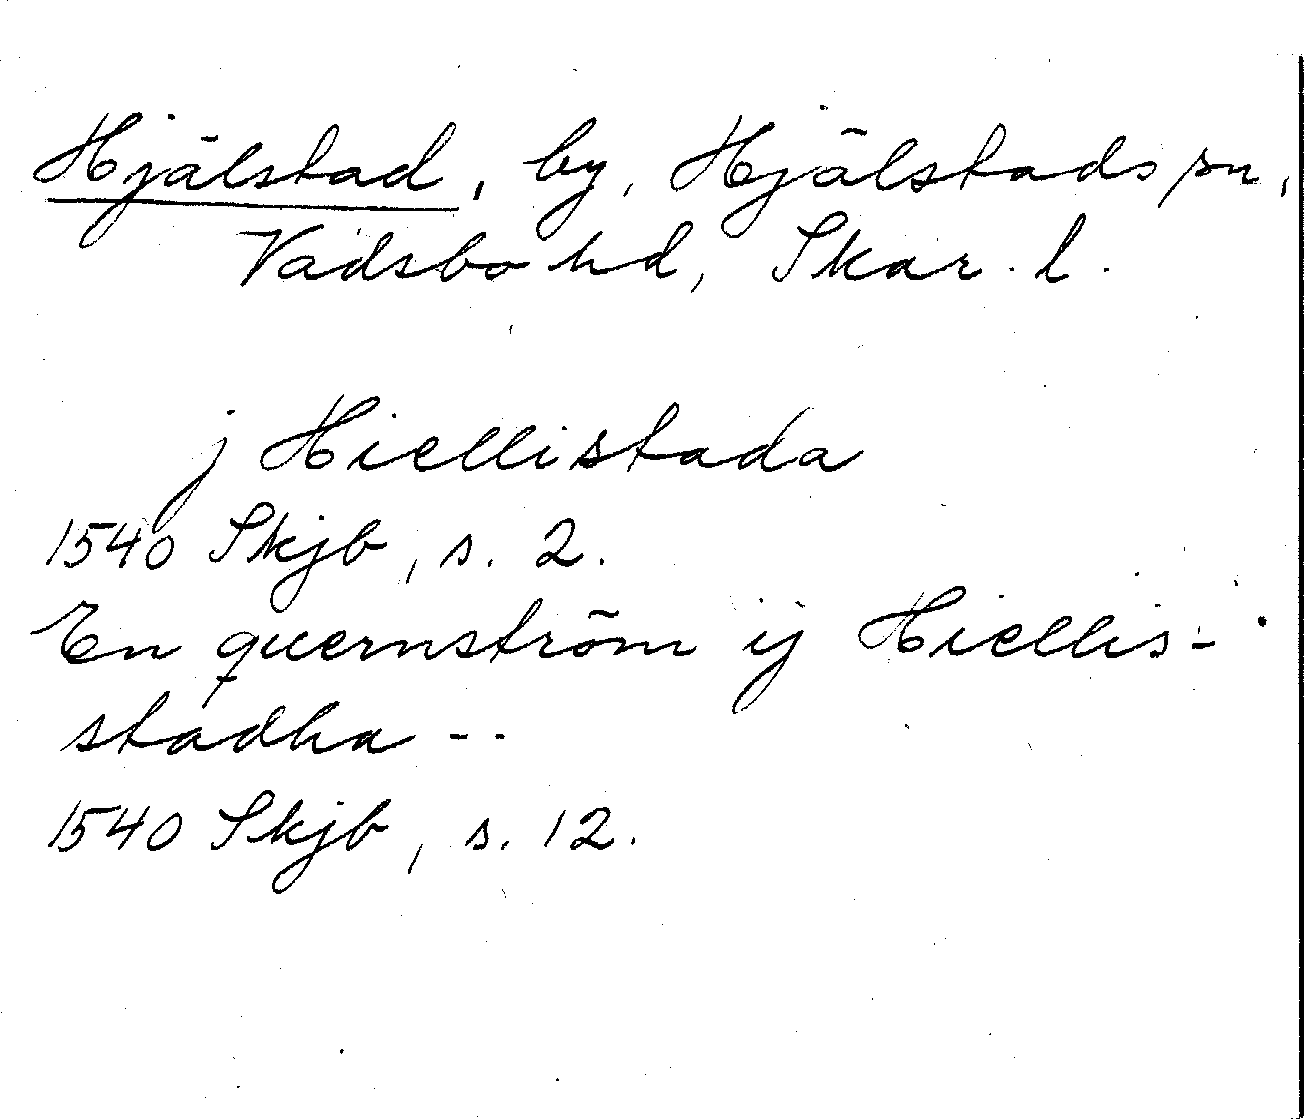 Hjälstad, by, Hjälstads sn,
Vadsbo hd, Skar. l.
j Hiellistada
1540 Skjb, s. 2.
En quernström ij Hiellis-
stadha --
1540 Skjb, s. 12.